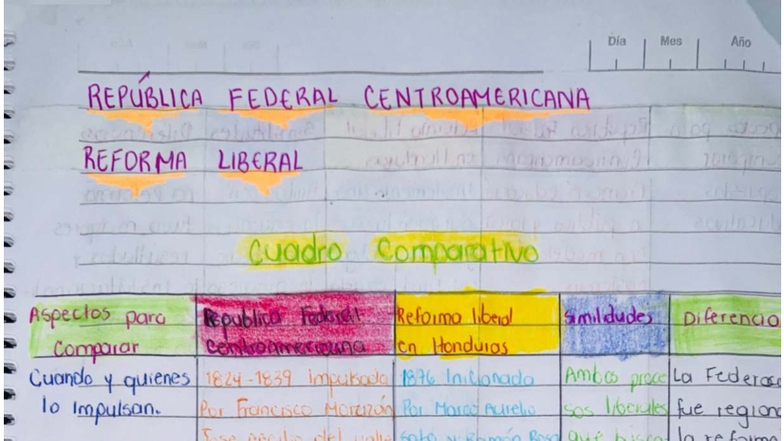 Día Mes Año
REPÚBLICA FEDERAL CENTROAMERICANA
REFORMA LIBERAL
Cuadro Comparativo
Aspectos para
Comparar
Republica Federal
Centroamericana
Reforma liberal
en Honduras
Similidudes
Diferencia
Cuando y quienes
lo Impulsan.
1824-1839 impulsada
Por Francisco Morazón
Jose
del valle
1876 Inicionado
Por Marco Aurelio
Soto y Ramón Rosa
Ambos proce
sos liberales
que
La Federac
fue region
la reforma